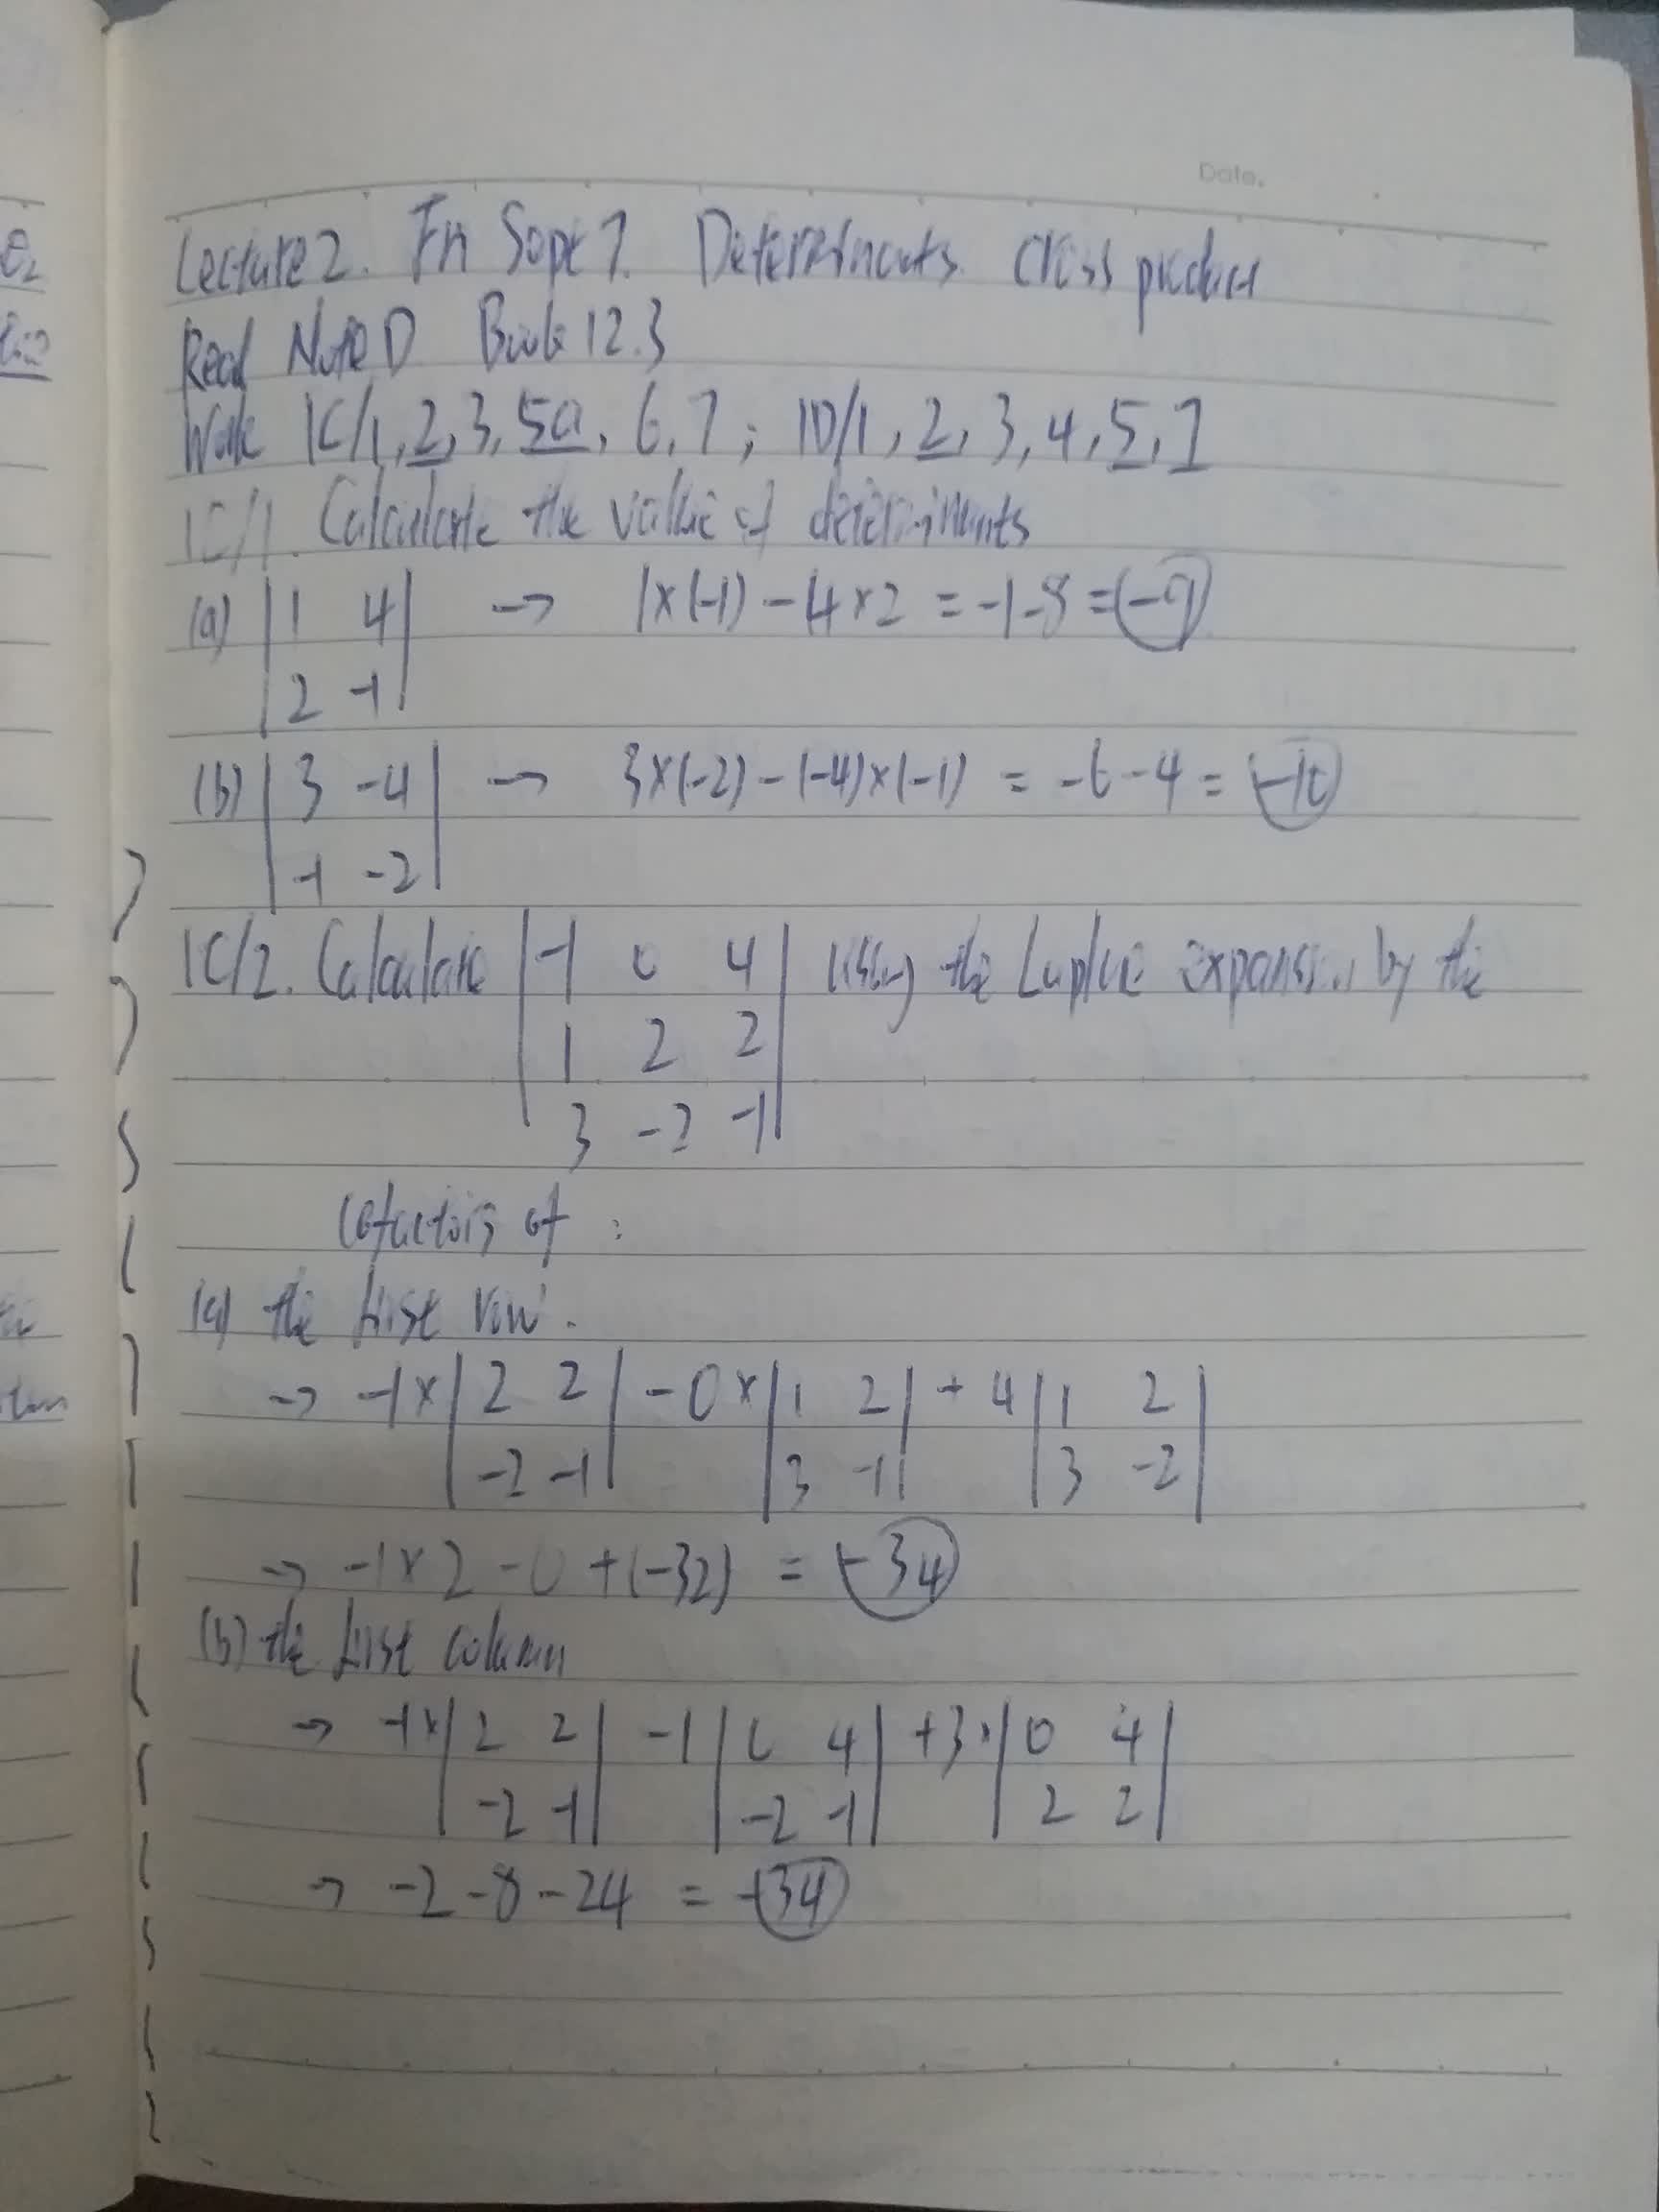 Date.
Lecture 2. Fri Sept 7. Determinants. cross product
Read Note D Book 12.3
Work 1C/1, 2, 3, 5a, 6, 7; 1D/1, 2, 3, 4, 5, 7
1C/1. Calculate the value of determinants
(a) | 1 4 | → 1×(-1) - 4×2 = -1-8 = -9
| 2 -1 |
(b) | 3 -4 | → 3×(-2) - (-4)×(-1) = -6-4 = -10
| -1 -2 |
1C/2. Calculate | -1 0 4 | using the Laplace expansion by the
| 1 2 2 |
| 3 -2 -1 |
cofactors of :
(a) the first row.
→ -1× | 2 2 | - 0× | 1 2 | + 4 | 1 2 |
| -2 -1 | | 3 -1 | | 3 -2 |
→ -1×2 - 0 + (-32) = -34
(b) the first column
→ -1× | 2 2 | -1 | 0 4 | +3· | 0 4 |
| -2 -1 | | -2 -1 | | 2 2 |
→ -2 -8 -24 = -34